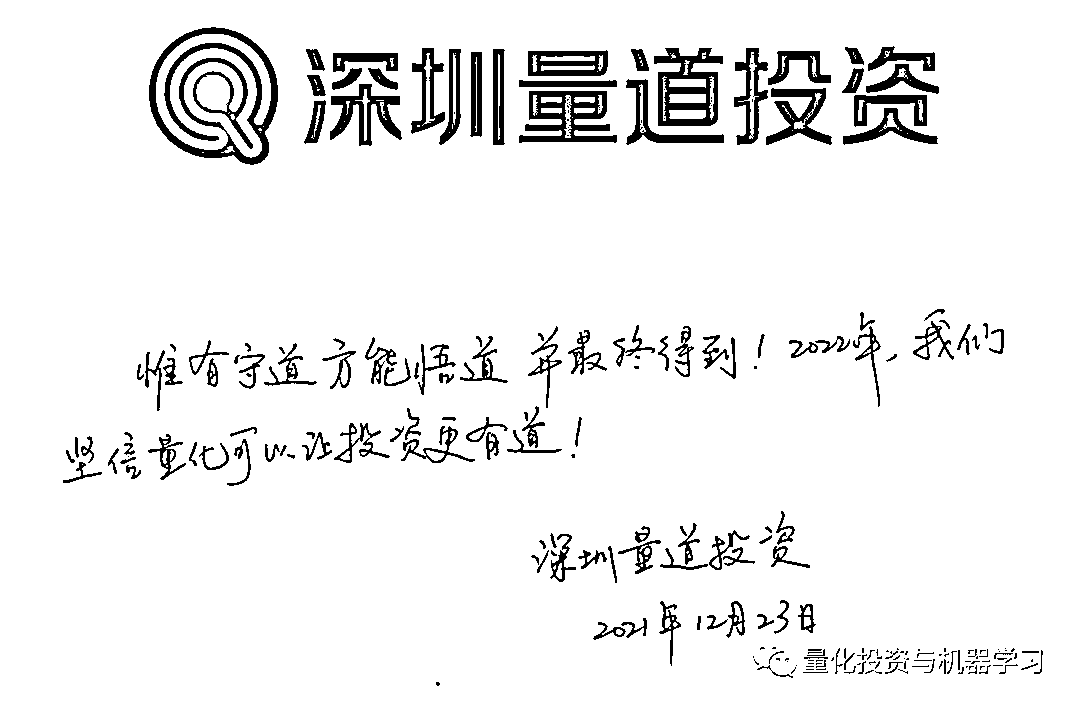 深圳量道投资
惟有守道方能悟道 并最终得到！2022年，我们
坚信量化可以让投资更有道！
深圳量道投资
2021年12月23日
量化投资与机器学习